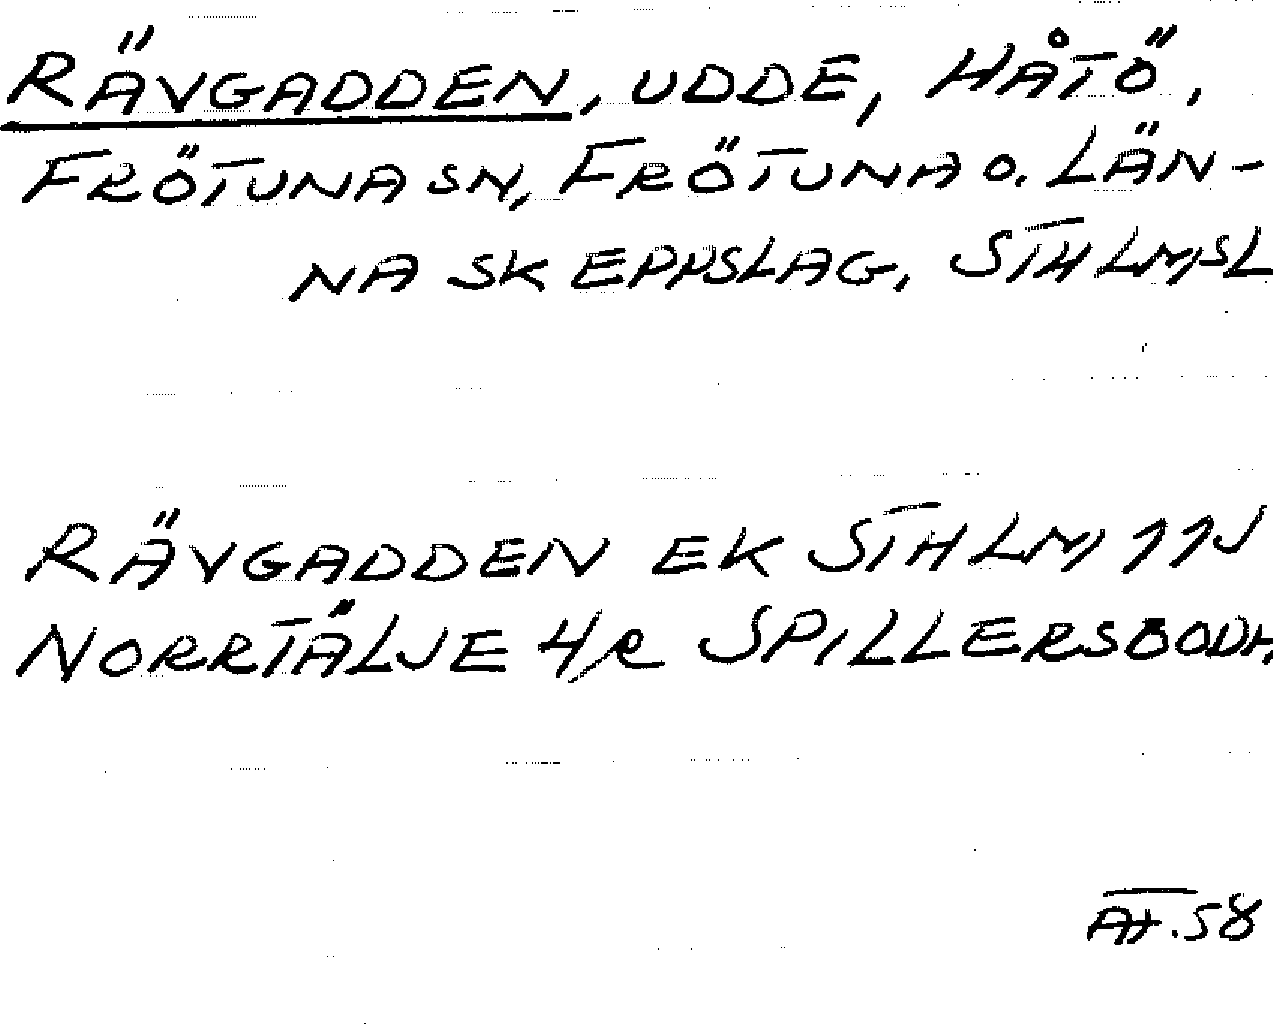 RÄVGADDEN, UDDE, HÅTÖ,
FRÖTUNA SN, FRÖTUNA O. LÄN-
NA SKEPPSLAG, STHLMSL
RÄVGADDEN EK STHLM 11J
NORRTÄLJE 4/R SPILLERSBODA
.58